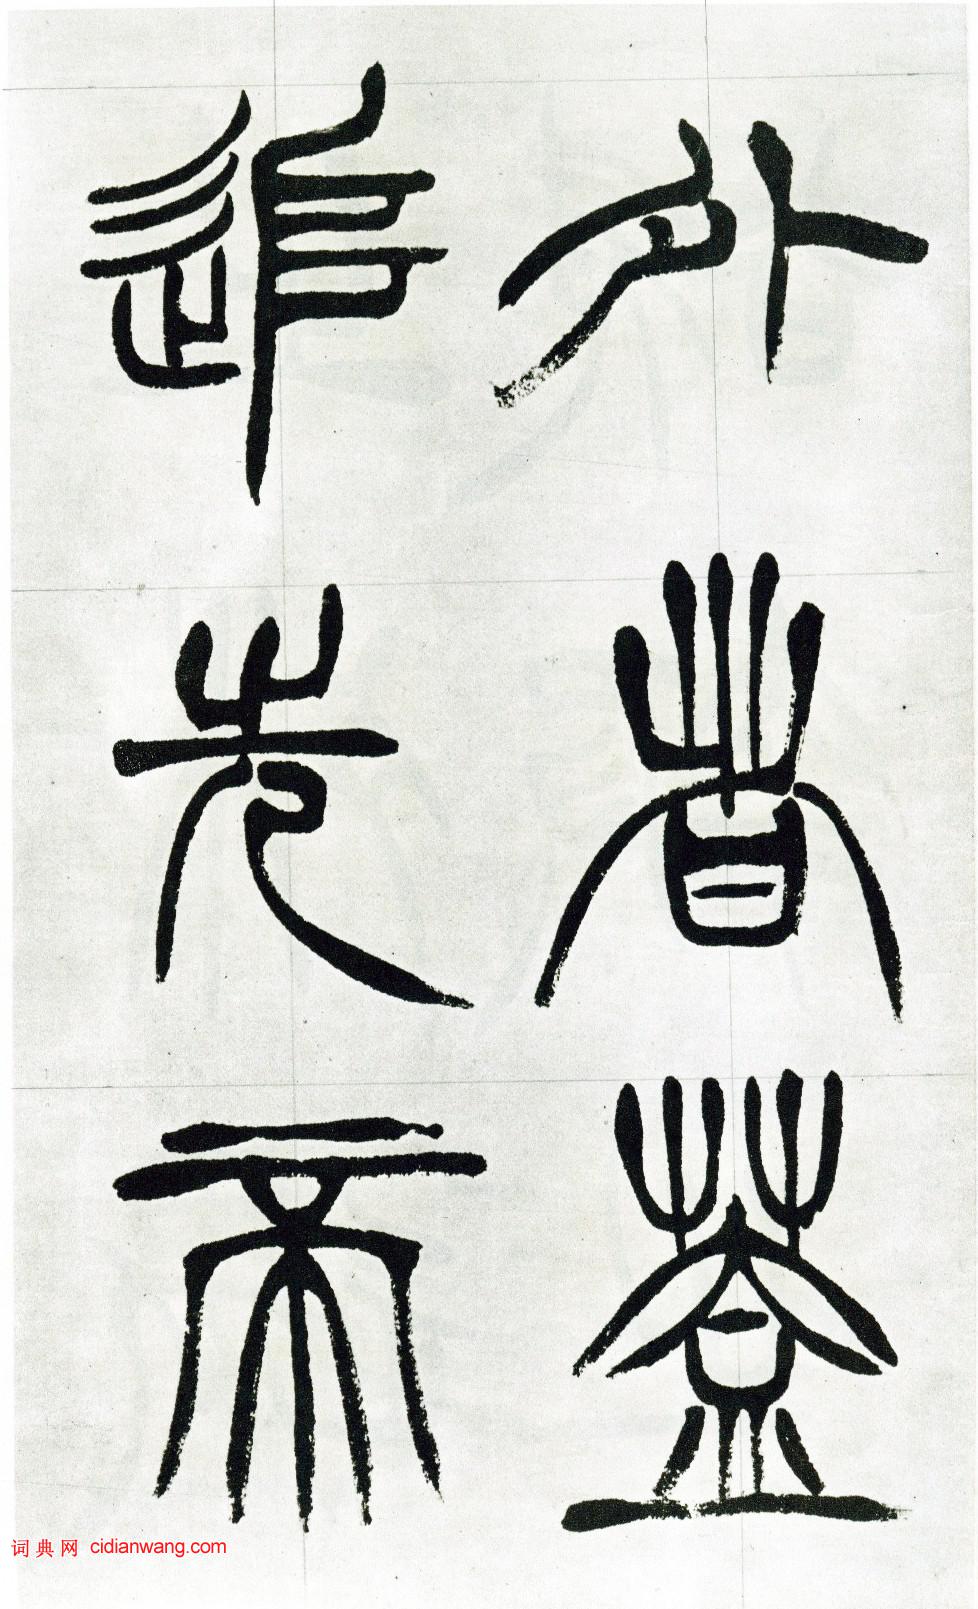 外者蓋
追先帝
词典网 cidianwang.com